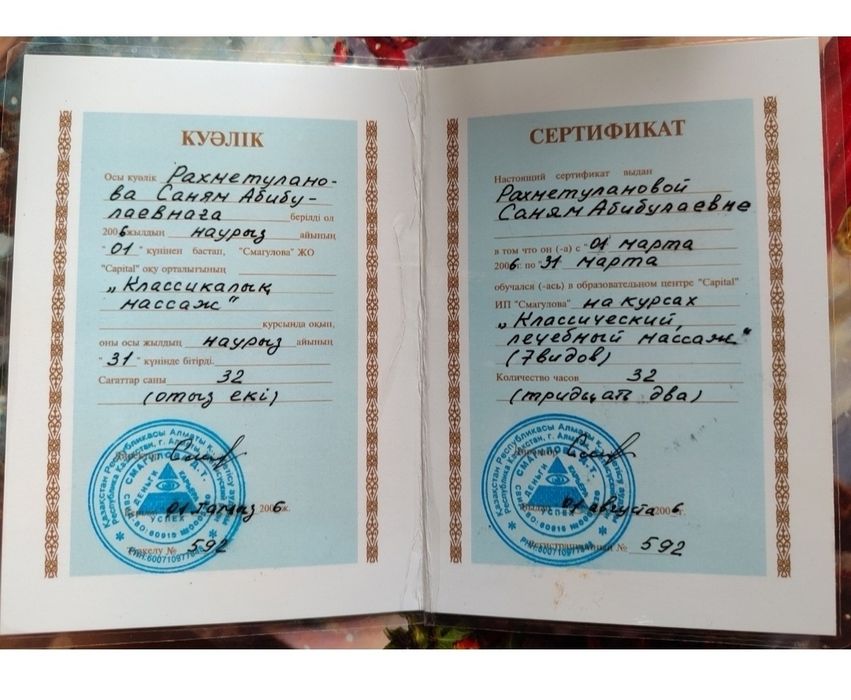 КУӘЛІК
Осы куәлік Рахметулано-
ва Саням Абибу-
лаевнаға берілді ол
2006 жылдың наурыз айының
"01" күнінен бастап, "Смагулова" ЖО
"Capital" оқу орталығының
„Классикалық
массаж"
курсында оқып,
оны осы жылдың наурыз айының
"31" күнінде бітірді.
Сағаттар саны 32
(отыз екі)
01 тамыз 2006 ж.
Тіркелу № 592
СЕРТИФИКАТ
Настоящий сертификат выдан
Рахметулановой
Саням Абибулаевне
в том что он (-а) с "01 марта
2006 г. по "31 марта
обучался (-ась) в образовательном центре "Capital"
ИП "Смагулова" на курсах
„Классический,
лечебный массаж"
(7видов)
Количество часов 32
(тридцать два)
Директор
01 августа 2006 г.
Регистрационный № 592
Қазақстан Республикасы Алматы қ.
Республика Казахстан, г. Алматы
СМАГУЛОВА Д.Т.
ДЕНЬГИ
КАРЬЕРА
УСПЕХ